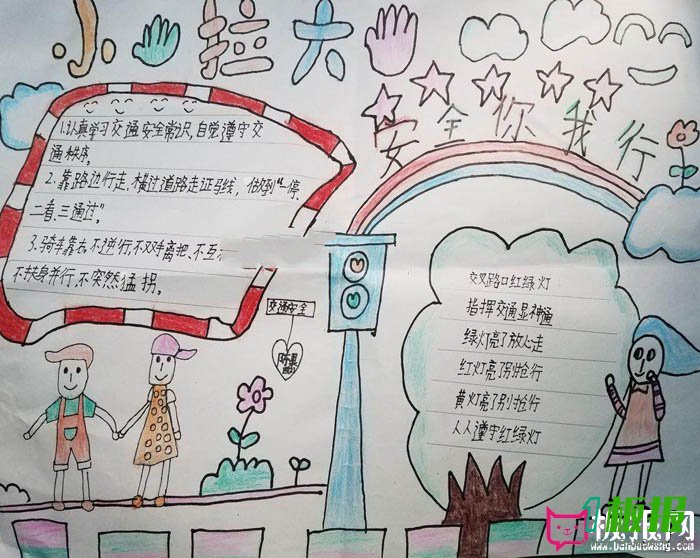 小 拉大
安全你我行
1.认真学习交通安全常识,自觉遵守交
通秩序。
2.靠路边行走,横过道路走
二看,三通过”。
3.骑车靠右,不逆行,不双手离把,不互
不转身并行,不突然猛拐。
交通安全
交叉路口红绿灯
指挥交通显神通
绿灯亮了放心走
红灯亮了别抢行
黄灯亮了别抢行
人人遵守红绿灯
板报网
www.banbaowang.com